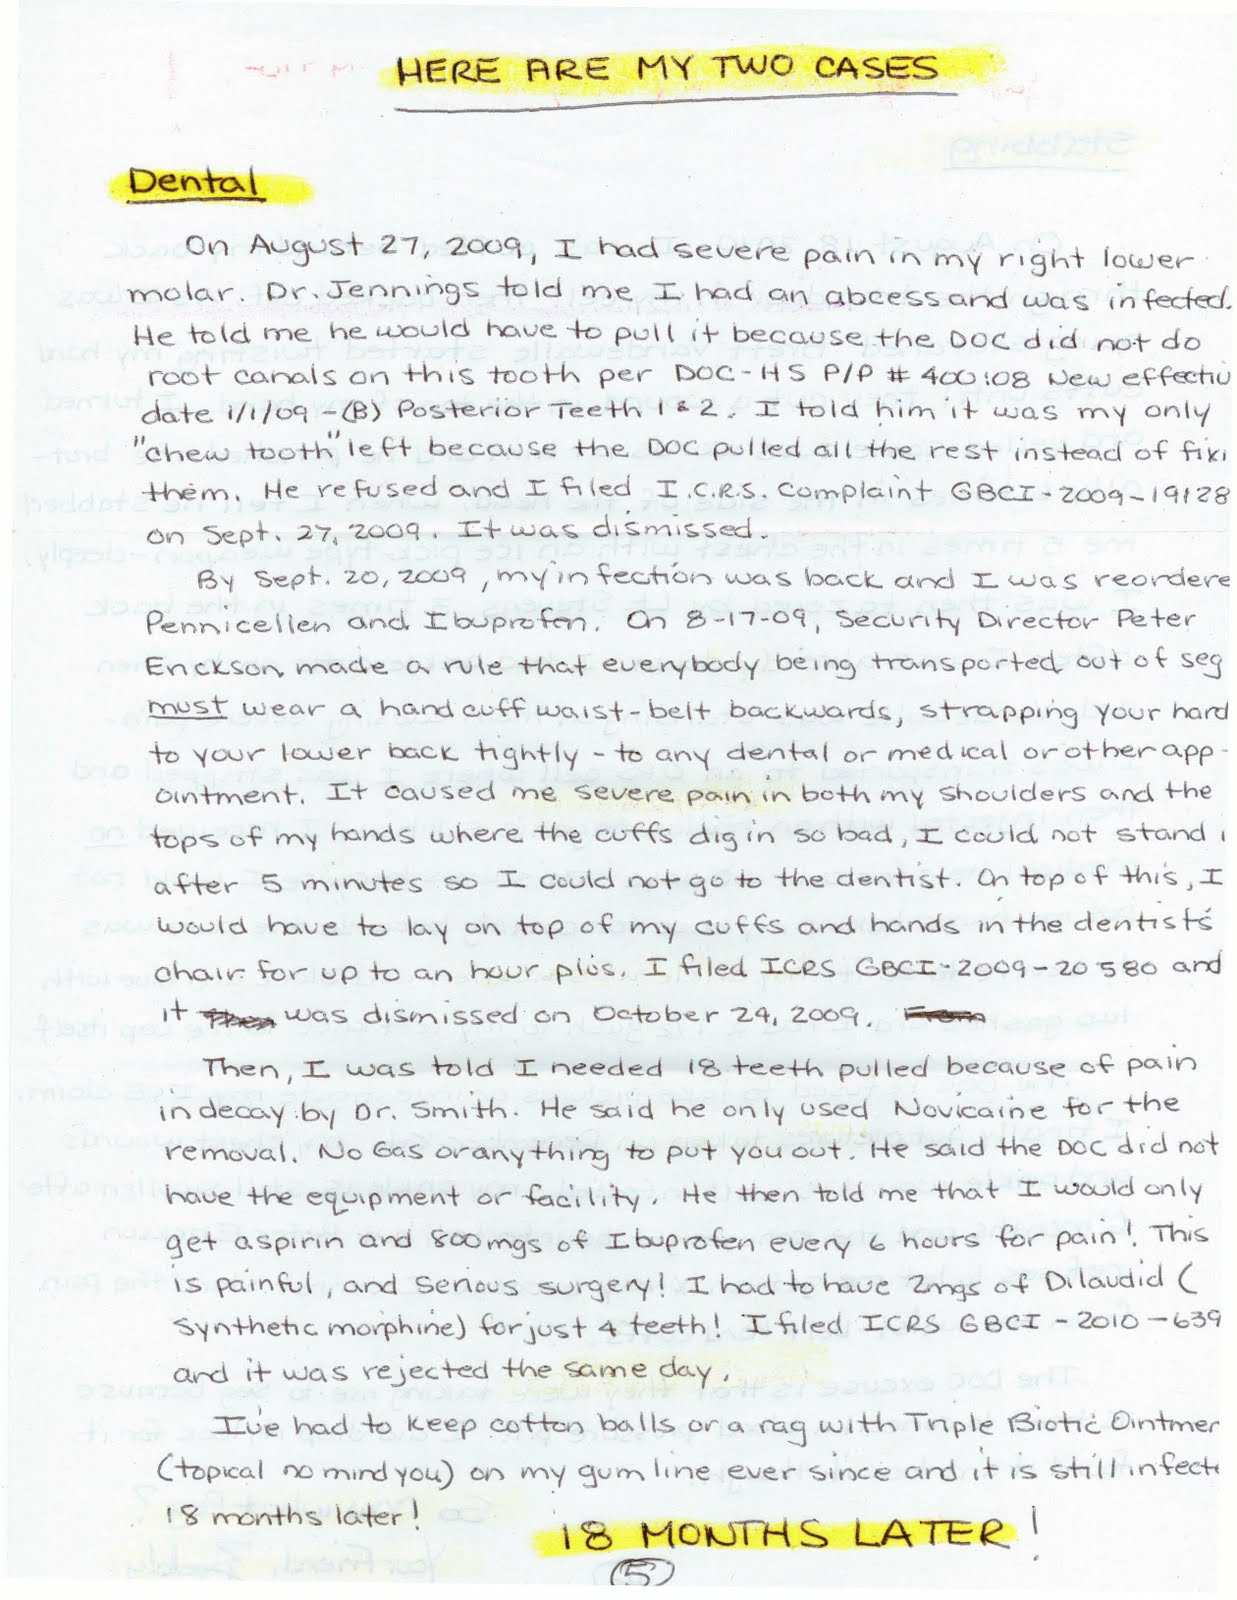 HERE ARE MY TWO CASES
Dental
On August 27, 2009, I had severe pain in my right lower
molar. Dr. Jennings told me I had an abcess and was infected.
He told me he would have to pull it because the DOC did not do
root canals on this tooth per DOC-HS P/P # 400:08 New effectiv
date 1/1/09 - (B) Posterior Teeth 1 & 2. I told him it was my only
"chew tooth" left because the DOC pulled all the rest instead of fixi
them. He refused and I filed I.C.R.S. Complaint GBCI-2009-19128
on Sept. 27, 2009. It was dismissed.
By Sept. 20, 2009, my infection was back and I was reordere
Pennicellen and Ibuprofen. On 8-17-09, Security Director Peter
Erickson made a rule that everybody being transported out of seg
must wear a hand cuff waist-belt backwards, strapping your hand
to your lower back tightly - to any dental or medical or other app-
ointment. It caused me severe pain in both my shoulders and the
tops of my hands where the cuffs dig in so bad, I could not stand i
after 5 minutes so I could not go to the dentist. On top of this, I
would have to lay on top of my cuffs and hands in the dentist's
chair for up to an hour plus. I filed ICRS GBCI-2009-20580 and
it was dismissed on October 24, 2009.
Then, I was told I needed 18 teeth pulled because of pain
in decay by Dr. Smith. He said he only used Novicaine for the
removal. No Gas or anything to put you out. He said the DOC did not
have the equipment or facility. He then told me that I would only
get aspirin and 800mgs of Ibuprofen every 6 hours for pain! This
is painful, and serious surgery! I had to have 2mgs of Dilaudid (
Synthetic morphine) for just 4 teeth! I filed ICRS GBCI-2010-639
and it was rejected the same day.
I've had to keep cotton balls or a rag with Triple Biotic Ointmen
(topical no mind you) on my gum line ever since and it is still infecte
18 months later!
18 MONTHS LATER!
5